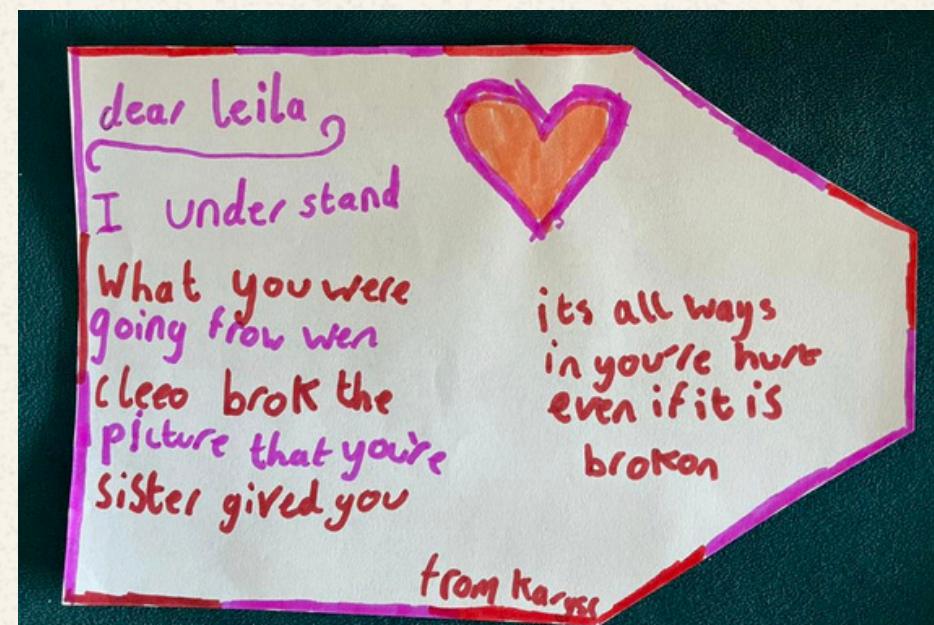 dear leila
I understand
What you were
going frow wen
cleeo brok the
picture that you're
sister gived you
its all ways
in you're hurt
even if it is
brokon
from